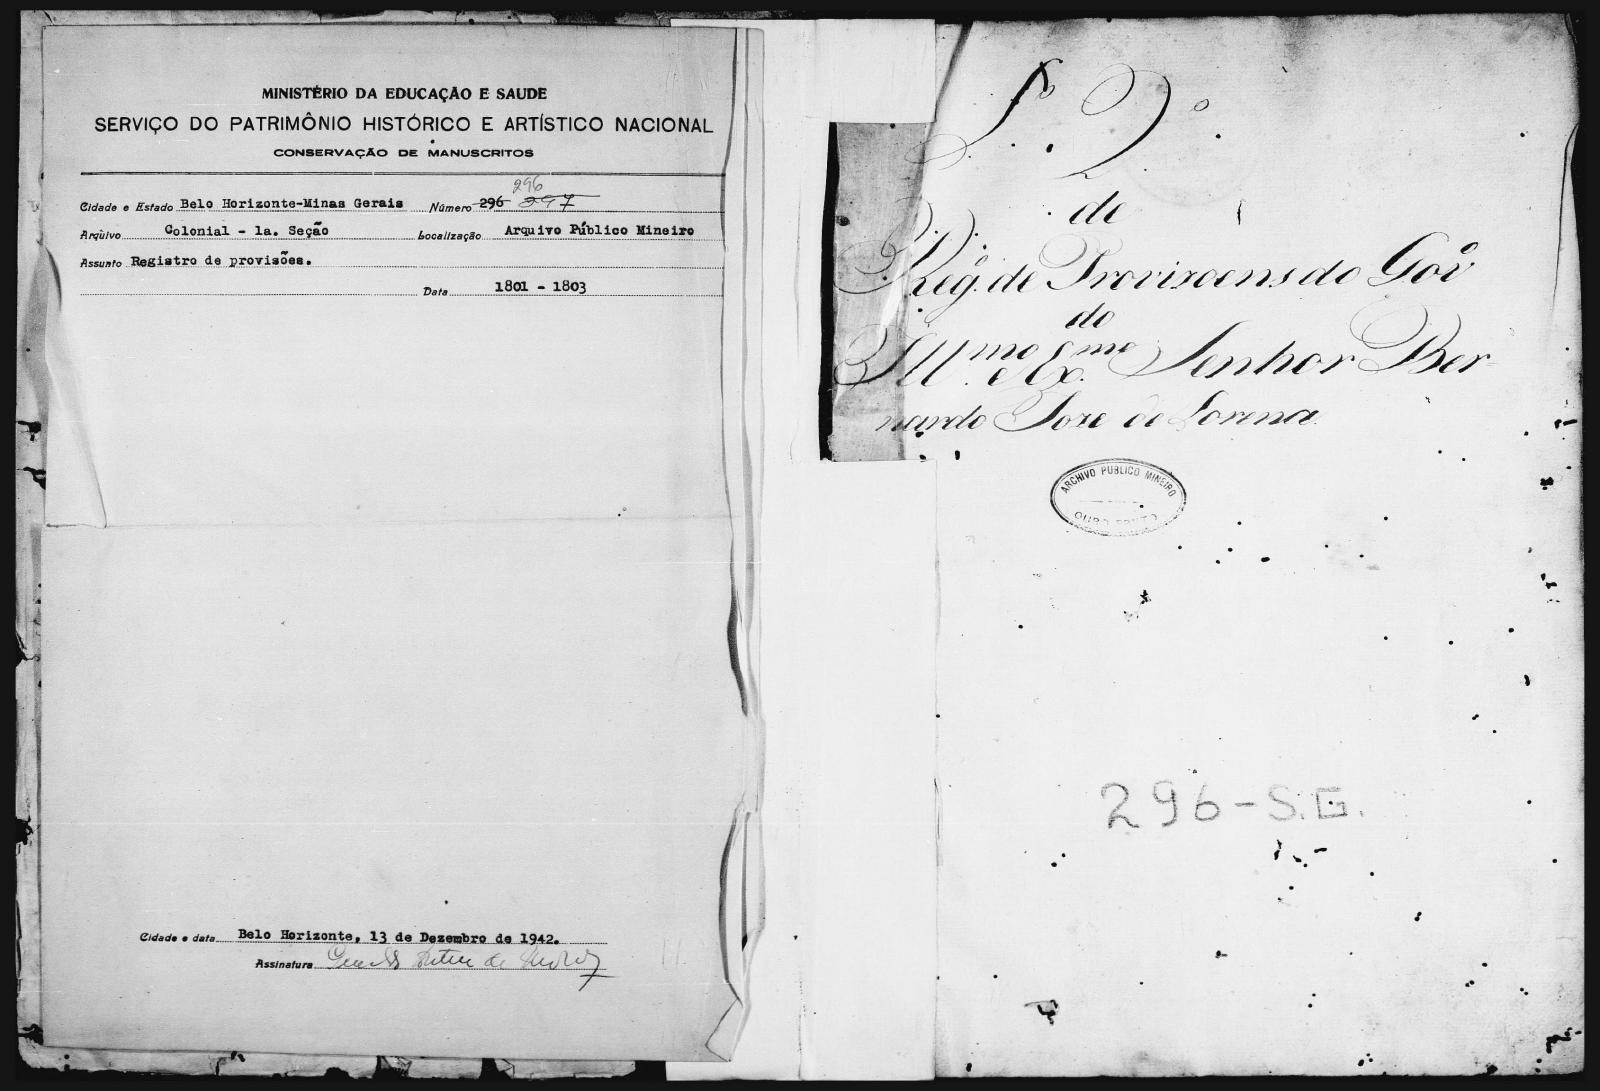 MINISTÉRIO DA EDUCAÇÃO E SAUDE
SERVIÇO DO PATRIMÔNIO HISTÓRICO E ARTÍSTICO NACIONAL
CONSERVAÇÃO DE MANUSCRITOS
296
Cidade e Estado Belo Horizonte-Minas Gerais Número 296 297
Arquivo Colonial - 1a. Seção Localização Arquivo Público Mineiro
Assunto Registro de provisões.
Data 1801 - 1803
Cidade e data Belo Horizonte, 13 de Dezembro de 1942.
Assinatura
L.º 2.º
de
Reg.º de Provizoens do Gov.º
do
Ill.mo e Ex.mo Senhor Ber-
nardo Joze de Lorena
ARCHIVO PUBLICO MINEIRO
OURO PRETO
296-S.G.